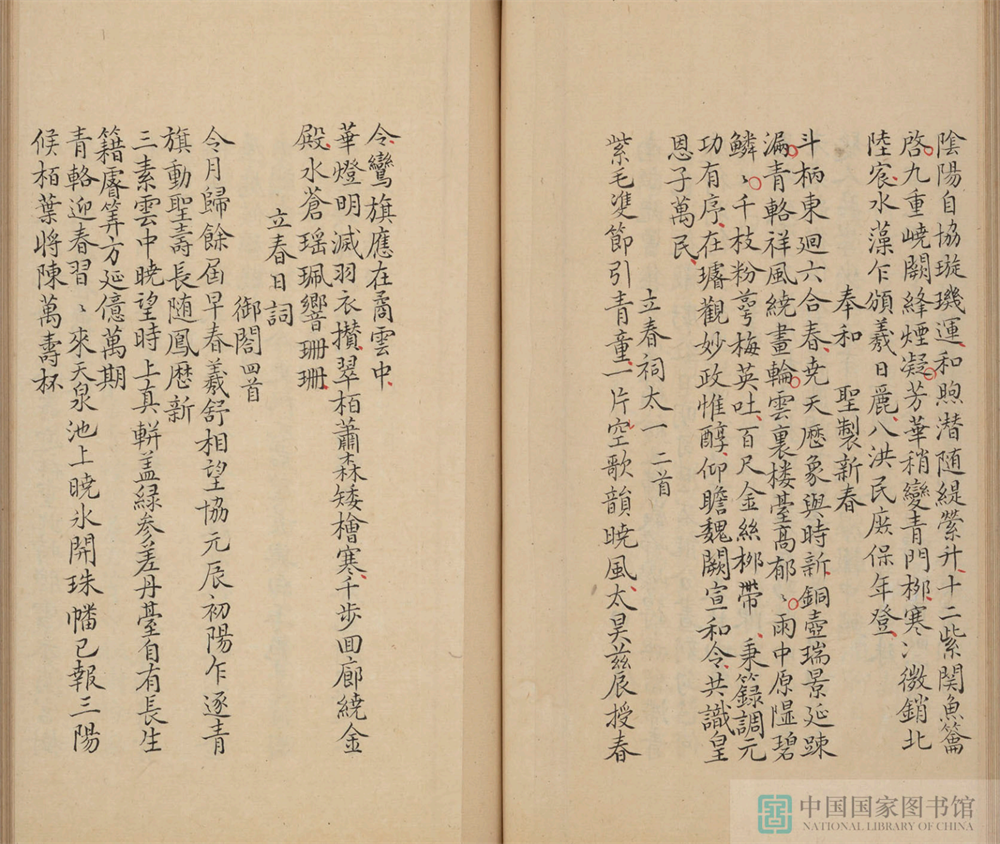 陰陽自協璇璣運和煦潛随緹縈升十二紫関魚籥
啓九重嶢闕絳煙凝芳華稍變青門栁寒冫微銷北
陸宸水藻乍頒羲日麗八洪民庻保年登
奉和　聖製新春
斗柄東廻六合春尭天厯象與時新銅壺瑞景延踈
漏青輅祥風繞畫輪雲裏楼臺髙郁〻雨中原隰碧
鱗〻千枝粉萼梅英吐百尺金絲栁帶　秉籙調元
功有序在璿觀妙政惟醇仰瞻魏闕宣和令共識皇
恩子萬民
立春祠太一　二首
紫毛㕠節引青童一片空歌韻曉風太昊兹辰授春
令鸞旗應在矞雲中
華燈明滅羽衣攅翠栢蕭森矮檜寒千步囬廊繞金
殿水蒼瑶珮響珊珊
立春日詞
御閤四首
令月歸餘届早春羲舒相望協元辰初陽乍逐青
旗動聖壽長随鳳厯新
三素雲中曉望時上真輧盖緑参差丹臺自有長生
籍睿筭方延億萬期
青輅迎春習〻來天泉池上曉氷開珠幡已報三陽
候栢葉将陳萬壽杯
中国国家图书馆
NATIONAL LIBRARY OF CHINA